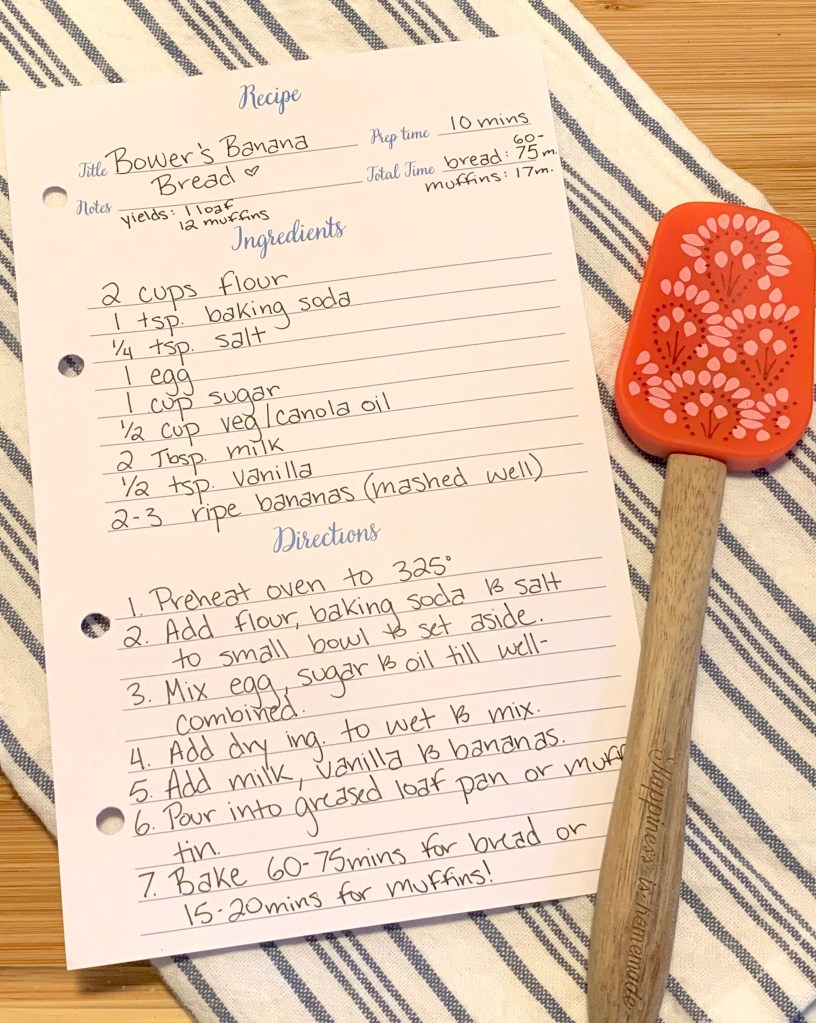 Recipe
Title Bower's Banana
Bread ♡
Prep time 10 mins
Total Time bread: 60-
75 m.
muffins: 17m.
Notes yields: 1 loaf
12 muffins
Ingredients
2 cups flour
1 tsp. baking soda
1/4 tsp. salt
1 egg
1 cup sugar
1/2 cup veg/canola oil
2 Tbsp. milk
1/2 tsp. vanilla
2-3 ripe bananas (mashed well)
Directions
1. Preheat oven to 325°
2. Add flour, baking soda & salt
to small bowl & set aside.
3. Mix egg, sugar & oil till well-
combined.
4. Add dry ing. to wet & mix.
5. Add milk, vanilla & bananas.
6. Pour into greased loaf pan or muff
tin.
7. Bake 60-75mins for bread or
15-20mins for muffins!
Happiness is homemade